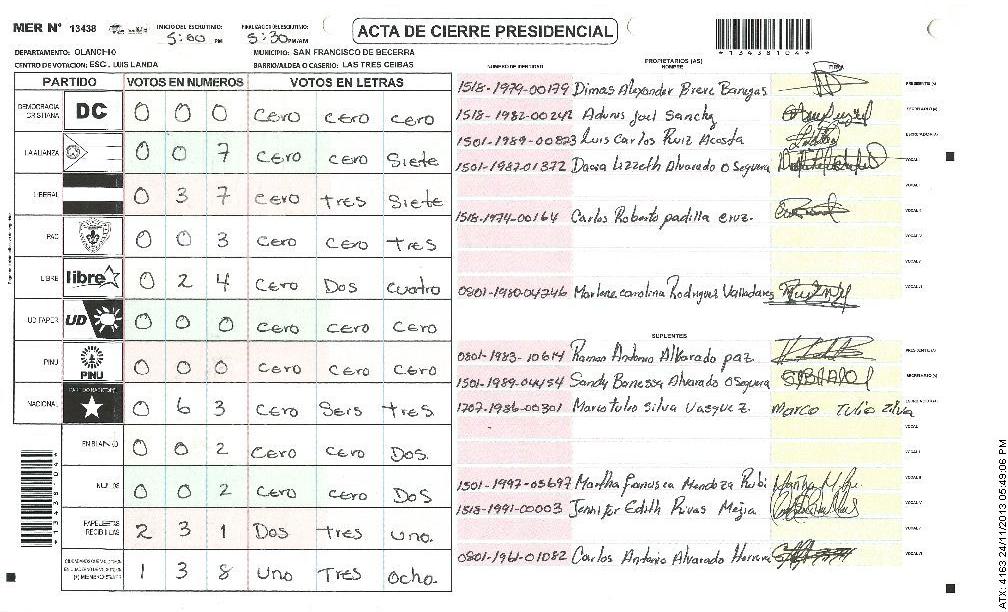 MER Nº 13438 INICIO DEL ESCRUTINIO: 5:00 PM FINALIZACION DEL ESCRUTINIO: 5:30 PM/AM
ACTA DE CIERRE PRESIDENCIAL
*13438104*
DEPARTAMENTO: OLANCHO MUNICIPIO: SAN FRANCISCO DE BECERRA
CENTRO DE VOTACION: ESC. LUIS LANDA BARRIO/ALDEA O CASERIO: LAS TRES CEIBAS
PARTIDO VOTOS EN NUMEROS VOTOS EN LETRAS
DEMOCRACIA CRISTIANA DC 0 0 0 Cero cero cero
LA ALIANZA 0 0 7 cero cero Siete
LIBERAL 0 3 7 cero tres Siete
PAC 0 0 3 Cero cero tres
LIBRE libre 0 2 4 Cero Dos cuatro
UD FAPER UD 0 0 0 cero cero Cero
PINU PINU 0 0 0 cero cero cero
NACIONAL 0 6 3 Cero Seis tres
EN BLANCO 0 0 2 Cero cero Dos.
NULOS 0 0 2 cero cero Dos
PAPELETAS RECIBIDAS 2 3 1 Dos tres uno.
1 3 8 uno Tres ocho.
NUMERO DE IDENTIDAD PROPIETARIOS (AS) NOMBRE FIRMA
1518-1979-00179 Dimas Alexander Breve Banegas PRESIDENTE (A)
1518-1982-00242 Adonis Joel Sanchez SECRETARIO (A)
1501-1989-00823 Luis Carlos Ruiz Acosta ESCRUTADOR (A)
1501-1987-01372 Dacia Lizzeth Alvarado O Seguera VOCAL I
1518-1974-00164 Carlos Roberto padilla cruz.
0801-1980-04246 Marlene carolina Rodriguez Valladares
SUPLENTES
0801-1983-10614 Ramon Antonio Alvarado paz. PRESIDENTE (A)
1501-1989-04454 Sandy Banessa Alvarado OSeguera SECRETARIO (A)
1707-1986-00301 Marco tulio Silva Vasquez. Marco Tulio Zilva ESCRUTADOR (A)
1501-1997-03697 Martha francisca Mendoza Rubi
1518-1991-00003 Jennifer Edith Rivas Mejia
0801-1961-01082 Carlos Antonio Alvarado Herrera
ATX: 4163 24/11/2013 05:49:06 PM